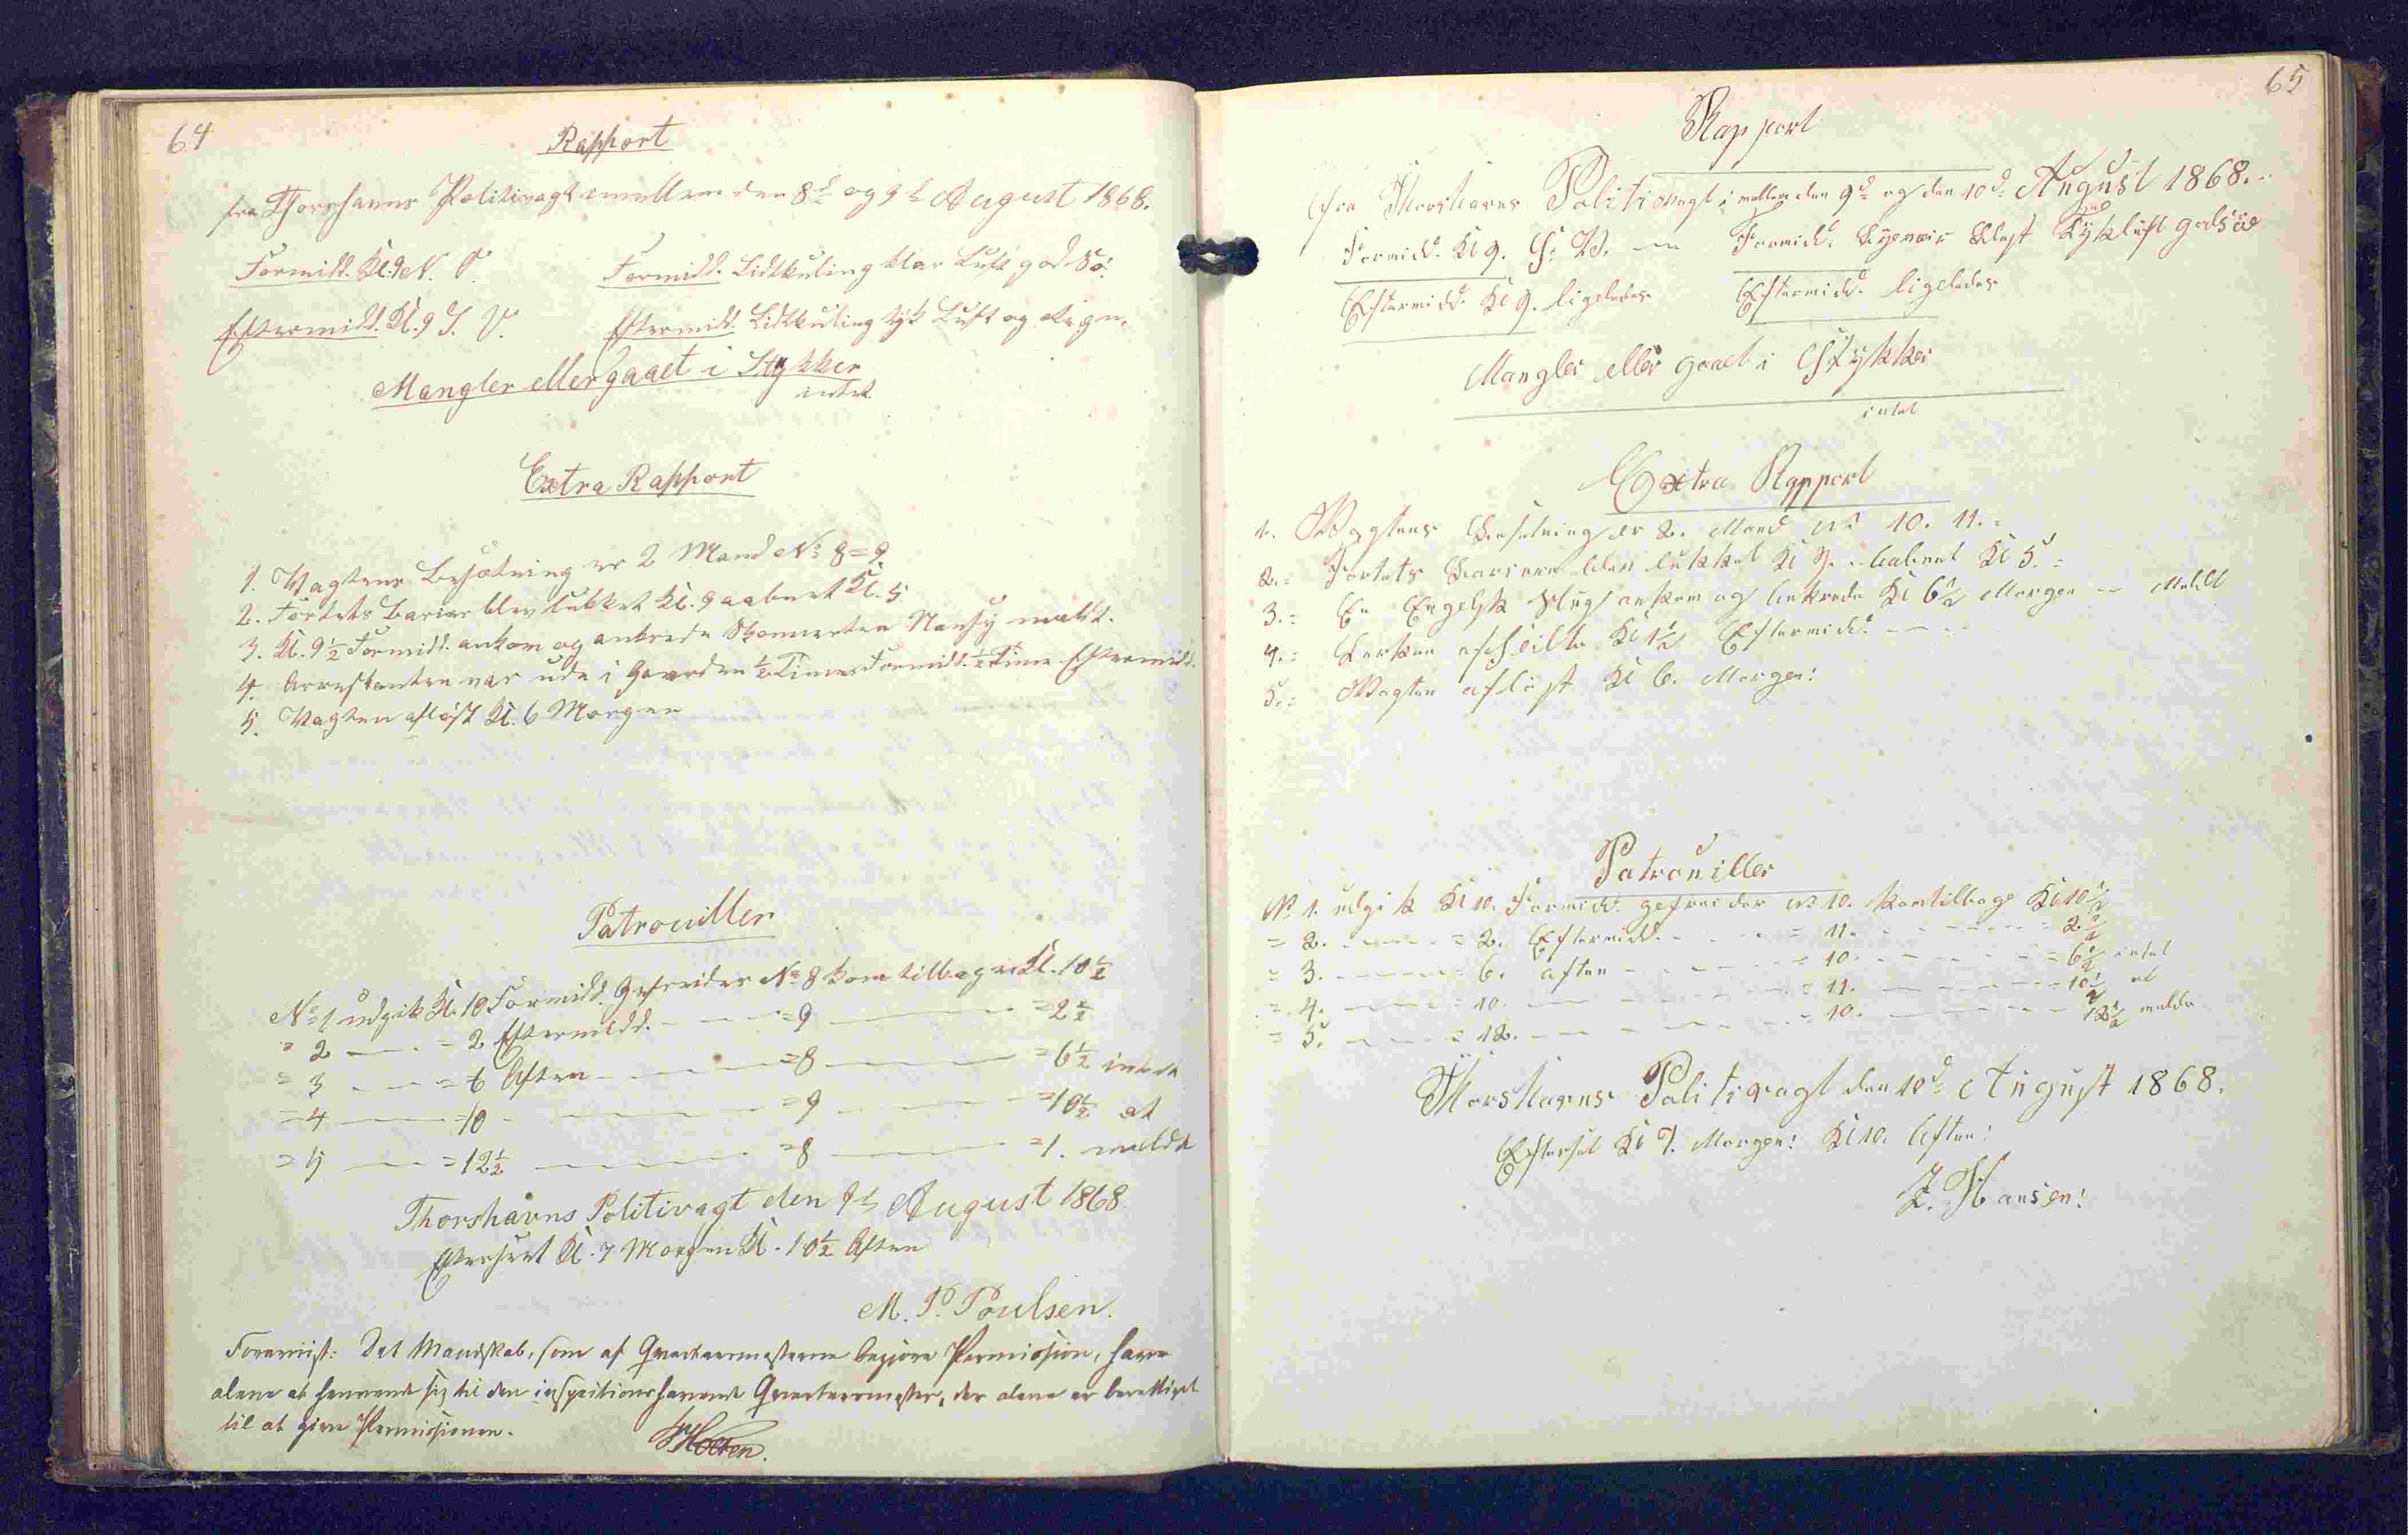 64
Rapport
fra Thorshavns Politivagt imellem den 8d og 9d August 1868.
Formidd. Kl. 9 N. V. Formidd. Lidtkuling klar Luft god Sö.
Eftermidd. Kl. 9 S. V. Eftermidd. Lidtkuling tÿk Luft og Regn.
Mangler eller gaaet i Stykker
intet
Extra Rapport
1. Vagtens Besætning er 2 Mand No 8 = 9
2. Fortets Barier blev lukket Kl. 9 aabnet Kl. 5.
3. Kl. 9½ Formidd. ankom og ankrede Skonnerten meldt.
4. Arrestanten var ude i Gaarden ½ Time Formidd. ½ Time Eftermidd.
5. Vagten aflöst Kl. 6 Morgen
Patrouiller
No 1 udgik Kl. 10 Formidd. Gefreider No 8 kom tilbage Kl. 10½
= 2 — = 2 Eftermidd. — = 9 — = 2½
= 3 — = 6 Aften — = 8 — = 6½ intet
= 4 — = 10 — = 9 — = 10½ at
= 5 — = 12½ — = 8 — = 1. melde
Thorshavns Politivagt den 9d August 1868.
Efterseet Kl. 7 Morgen Kl. 10½ Aften
M. P. Poulsen.
Det Mandskab, som af Qvarteermesterne begjøre Permission, have
alene at henvende sig til den inspectionshavende Qvarteermester, der alene er berettiget
til at give Permissionen.
HHolten.
65
Rapport
fra Thorshavns Politivagt imellem den 9d og den 10d August 1868.
Formidd. Kl 9. S. V. — Formidd. Tÿkluft god Sö
Eftermidd. Kl 9. ligeledes Eftermidd. ligeledes
Mangler eller gaaet i Stÿkker
intet
Extra Rapport
1. Vagtens Besetning er 2. Mand No 10. 11. =
2. = Fortets Bariere blev lukket Kl 9. aabnet Kl 5. =
3. = En Engelsk Slup ankom og ankrede Kl 6½ Morgen — Meldt
4. = afseilte Kl 1½ Eftermidd. — — —
5. = Vagten aflöst Kl 6. Morgen!
Patrouiller
No 1. udgik Kl 10. Formidd. gefreider No 10. kom tilbage Kl 10½
= 2. — = 2. Eftermidd. — = 11. — = 2½
= 3. — = 6. aften — = 10. — = 6½ intet
= 4. — = 10. — = 11. — = 10½ at
= 5. — = 12. — = 10. — = 12½ melde
Thorshavns Politivagt den 10d August 1868.
Efterset Kl 7. Morgen! Kl 10. Aften!
J. Hansen!